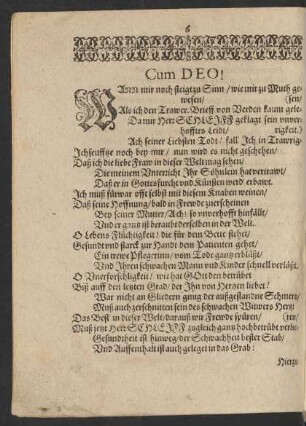 6
Cum DEO!
WAnn mir noch steigt zu Sinn / wie mir zu Muth ge-
wesen/ (sen/
Als ich den Trawer-Brieff von Verden kaum gele-
Da mir Herr SCHLEIFF geklagt sein unver-
hofftes Leidt/ rigkeit.)
Ach seiner Liebsten Todt / fall Ich in Trawrig-
Ich seufftze noch bey mir / nun wird es nicht geschehen/
Daß ich die liebe Fraw in dieser Welt mag sehen/
Die meinem Unterricht Ihr Söhnlein hat vertrawt/
Daß er in Gottesfurcht und Künsten werd erbawt.
Ich muß fürwar offt selbst mit diesem Knaben weinen/
Daß seine Hoffnung / bald in Frewde zuerscheinen
Bey seiner Mutter / Ach! so unverhofft hinfällt/
Und er muß sein beraubt derselben in der Welt.
O Lebens Flüchtigkeit! die für dem Bette stehet/
Gesundt und starck zur Handt dem Patienten gehet/
Ein trewe Pflegerinn / vom Tode gantz erblaßt/
Und Ihren schwachen Mann und Kinder schnell verläßt.
O Unerforschligkeit! wie hat GOtt den betrübet
Biß auff den letzten Grad / der Ihn von Hertzen liebet!
War nicht an Gliedern gnug der außgestandne Schmertz/
Muß auch zerschnitten sein des schwachen Witwers Hertz!
Das Best in dieser Welt / darauß wir Frewde spüren/ (ren/
Muß jetzt Herr SCHLEIFF zugleich gantz hochbetrübt verlie-
Gesundtheit ist hinweg / der Schwachheit bester Stab/
Und Auffenthalt ist auch geleget in das Grab:
Hierzu